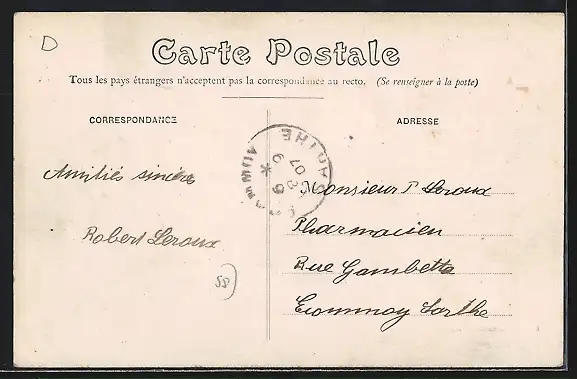 D
Carte Postale
Tous les pays étrangers n'acceptent pas la correspondance au recto. (Se renseigner à la poste)
CORRESPONDANCE
ADRESSE
Amitiés sincères
Robert Leroux
58
Monsieur P Leroux
Pharmacien
Rue Gambetta
Ecommoy Sarthe